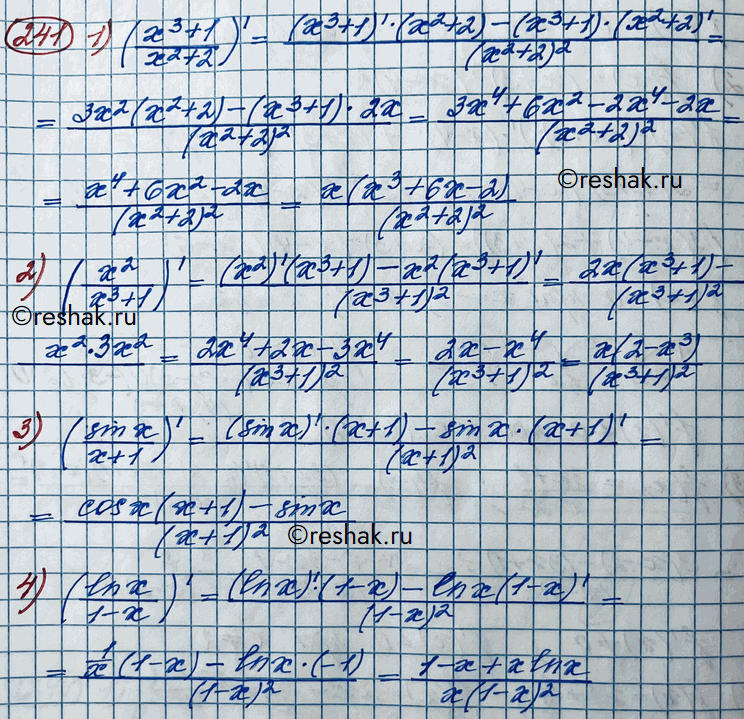 241 1) (x³+1/x²+2)' = (x³+1)'·(x²+2)-(x³+1)·(x²+2)'/(x²+2)² =
= 3x²(x²+2)-(x³+1)·2x/(x²+2)² = 3x⁴+6x²-2x⁴-2x/(x²+2)² =
= x⁴+6x²-2x/(x²+2)² = x(x³+6x-2)/(x²+2)²
©reshak.ru
2) (x²/x³+1)' = (x²)'(x³+1)-x²(x³+1)'/(x³+1)² = 2x(x³+1)-/(x³+1)²
©reshak.ru
x²·3x² = 2x⁴+2x-3x⁴/(x³+1)² = 2x-x⁴/(x³+1)² = x(2-x³)/(x³+1)²
3) (sinx/x+1)' = (sinx)'·(x+1)-sinx·(x+1)'/(x+1)² =
= cosx(x+1)-sinx/(x+1)²
©reshak.ru
4) (lnx/1-x)' = (lnx)'·(1-x)-lnx(1-x)'/(1-x)² =
= 1/x(1-x)-lnx·(-1)/(1-x)² = 1-x+xlnx/x(1-x)²